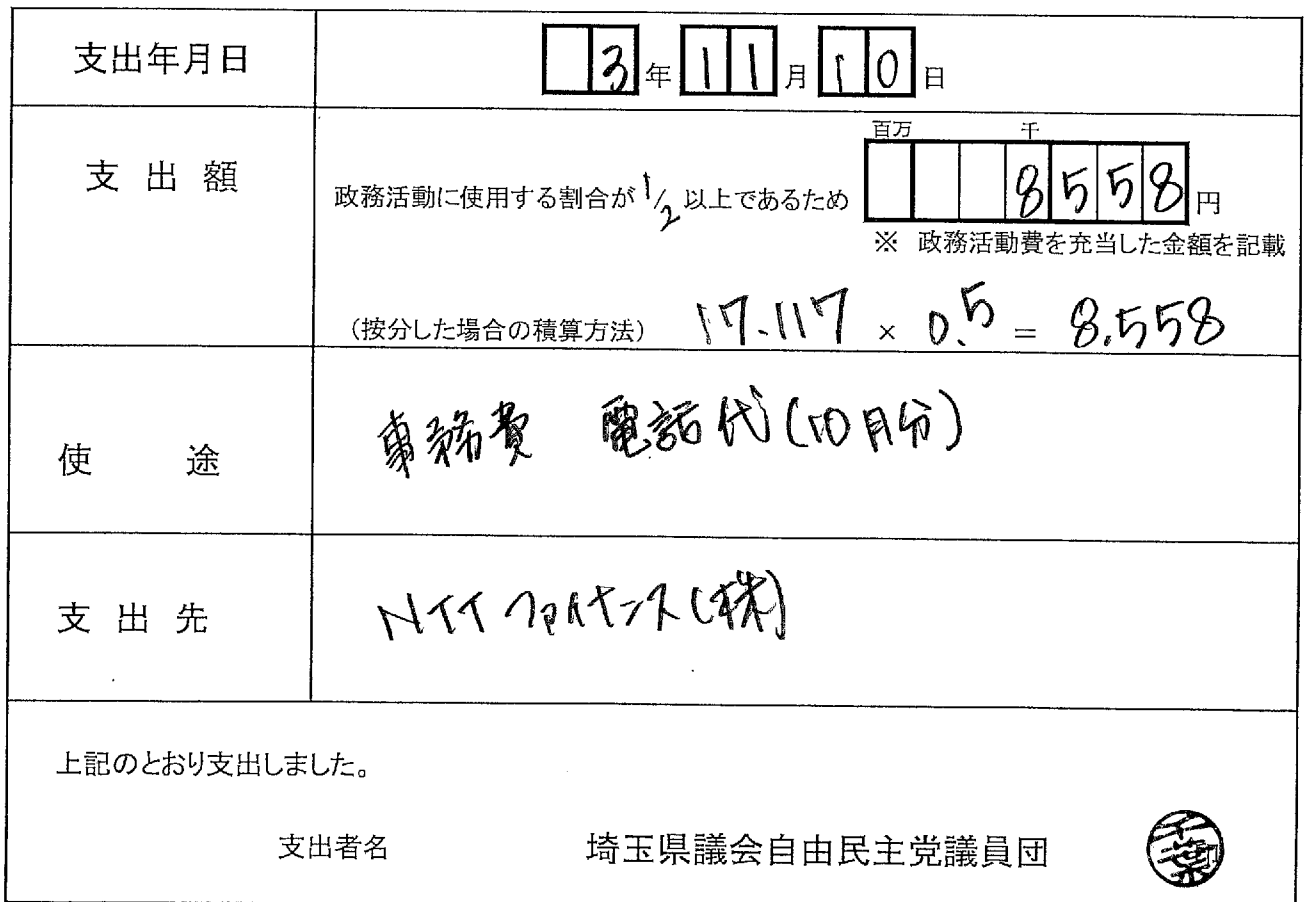 支出年月日 3年11月10日
支出額
百万 千
政務活動に使用する割合が1/2以上であるため 8558円
※ 政務活動費を充当した金額を記載
(按分した場合の積算方法) 17.117 × 0.5 = 8.558
使途 事務費 電話代(10月分)
支出先 NTTファイナンス(株)
上記のとおり支出しました。
支出者名 埼玉県議会自由民主党議員団 千葉